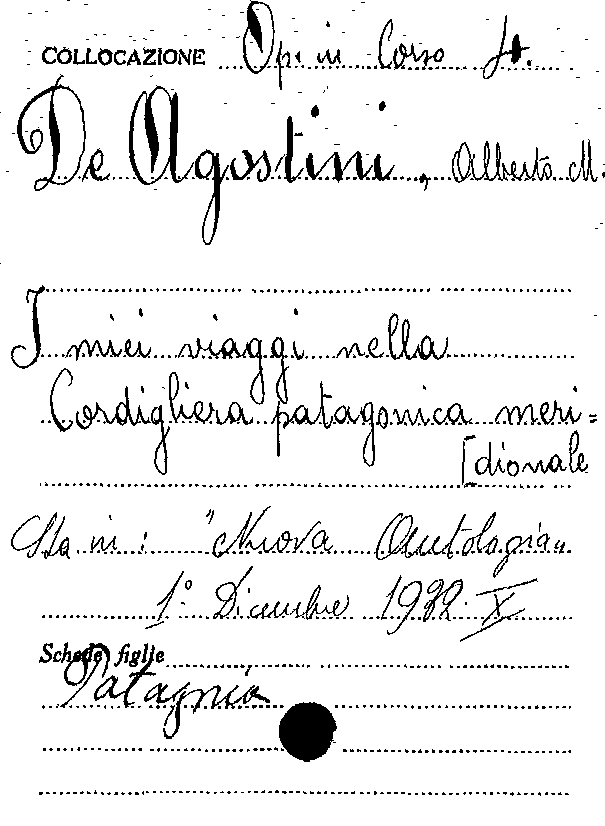 COLLOCAZIONE Op. in Corso It.
De Agostini, Alberto M.
I miei viaggi nella
Cordigliera patagonica meri=
[dionale
Sta in: "Nuova Antologia„
1° Dicembre 1932. X
Schede figlie
Patagnia